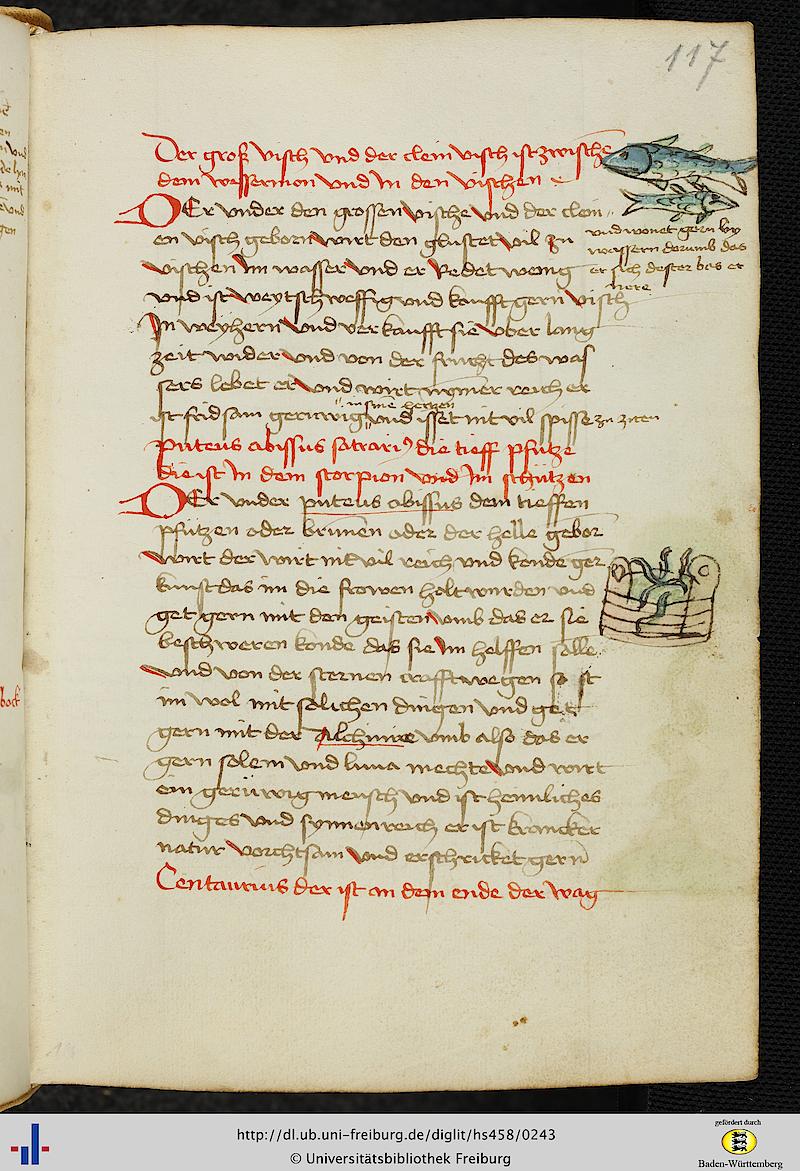 117
Der groß visch und der clein visch ist zwische
dem wasserman und in den vischen
DEr under den grossen vische und der clein
en visch geborn wirt den glustet vil zu
vischen im wasser und er redet wenig
und ist weytschweffig und kaufft gern visch
und wonet gern by
wassern darumb das
er sich dester bas er
nere
In weyhern und verkaufft sie uber lang
zeit wider und von der frucht des was
sers lebet er und wirt nymer reich er
ist fridsam geruwig und isset nit vil spisse zu ziten
in sine hertzen
puteus abissus satrarij die tieff pfutze
die ist in dem scorpion und im schützen
DEr under puteus abissus dem tieffen
pfützen oder brunen oder der helle gebor
wirt der wirt nit vil reich und konde ger
kunst das im die frowen holt wurden und
get gern mit den geisten umb das er sie
beschweren konde das sie im helffen solle
und von der sternen crafft wegen so ist
im wol mit solichen dingen und get
gern mit der Alchimie umb also das er
gern solem und luna mechte und wirt
ein gerüwig mensch und ist heimliches
dinges und synnenreich er ist krancker
natur vorchtsam und erschricket gern
Centaurius der ist an dem ende der wag
bock
http://dl.ub.uni-freiburg.de/diglit/hs458/0243
© Universitätsbibliothek Freiburg
gefördert durch
Baden-Württemberg